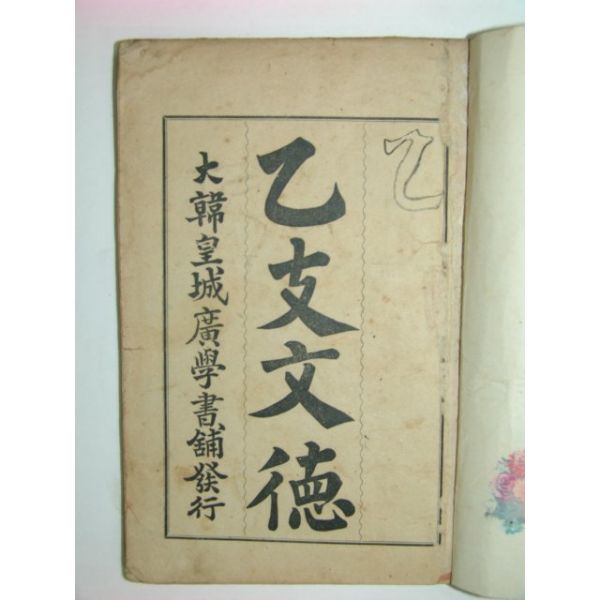 乙
乙支文徳
大韓皇城廣學書舖發行